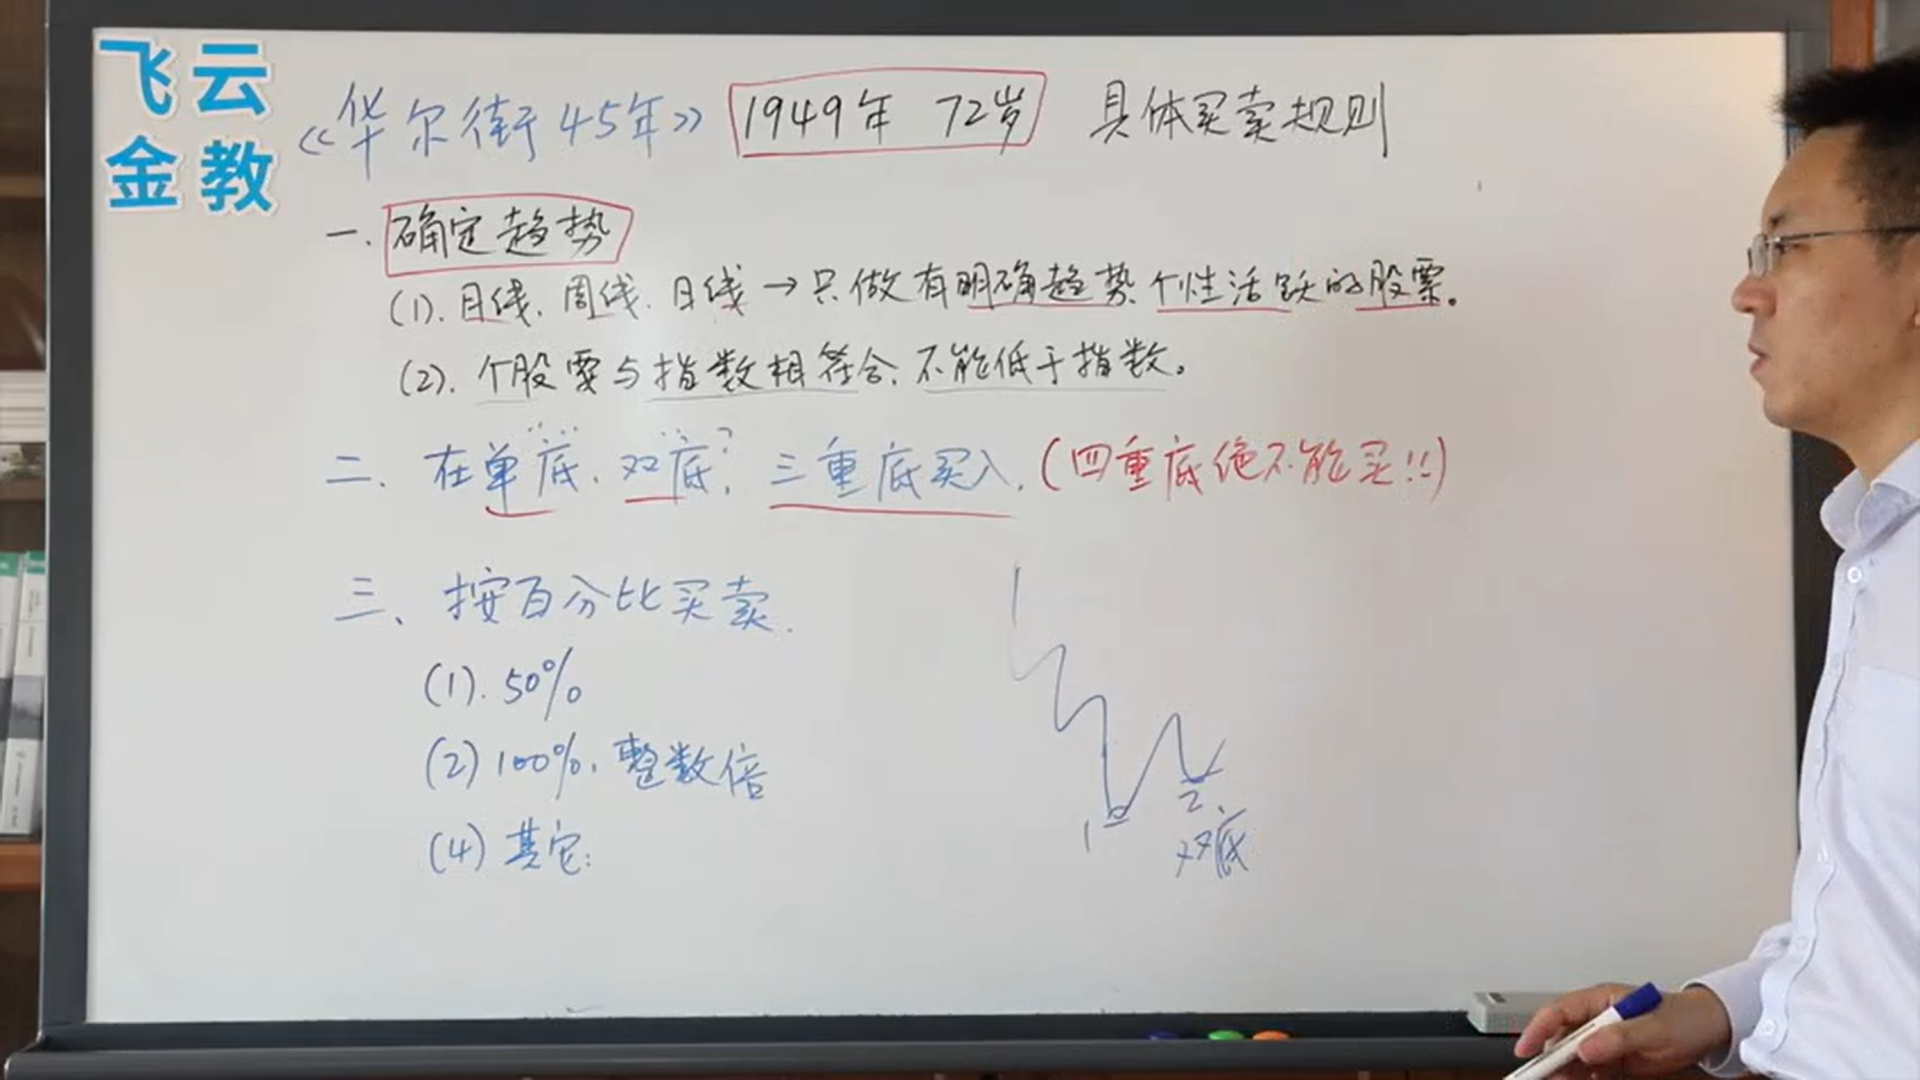 飞云
金教
《华尔街45年》 1949年 72岁 具体买卖规则
一.确定趋势
(1).月线.周线.日线→只做有明确趋势、个性活跃的股票。
(2).个股要与指数相符合、不能低于指数。
二.在单底.双底?.三重底买入.(四重底绝不能买!!)
三、按百分比买卖.
(1).50%
(2)100%.整数倍
(4)其它:
1
2.
双底